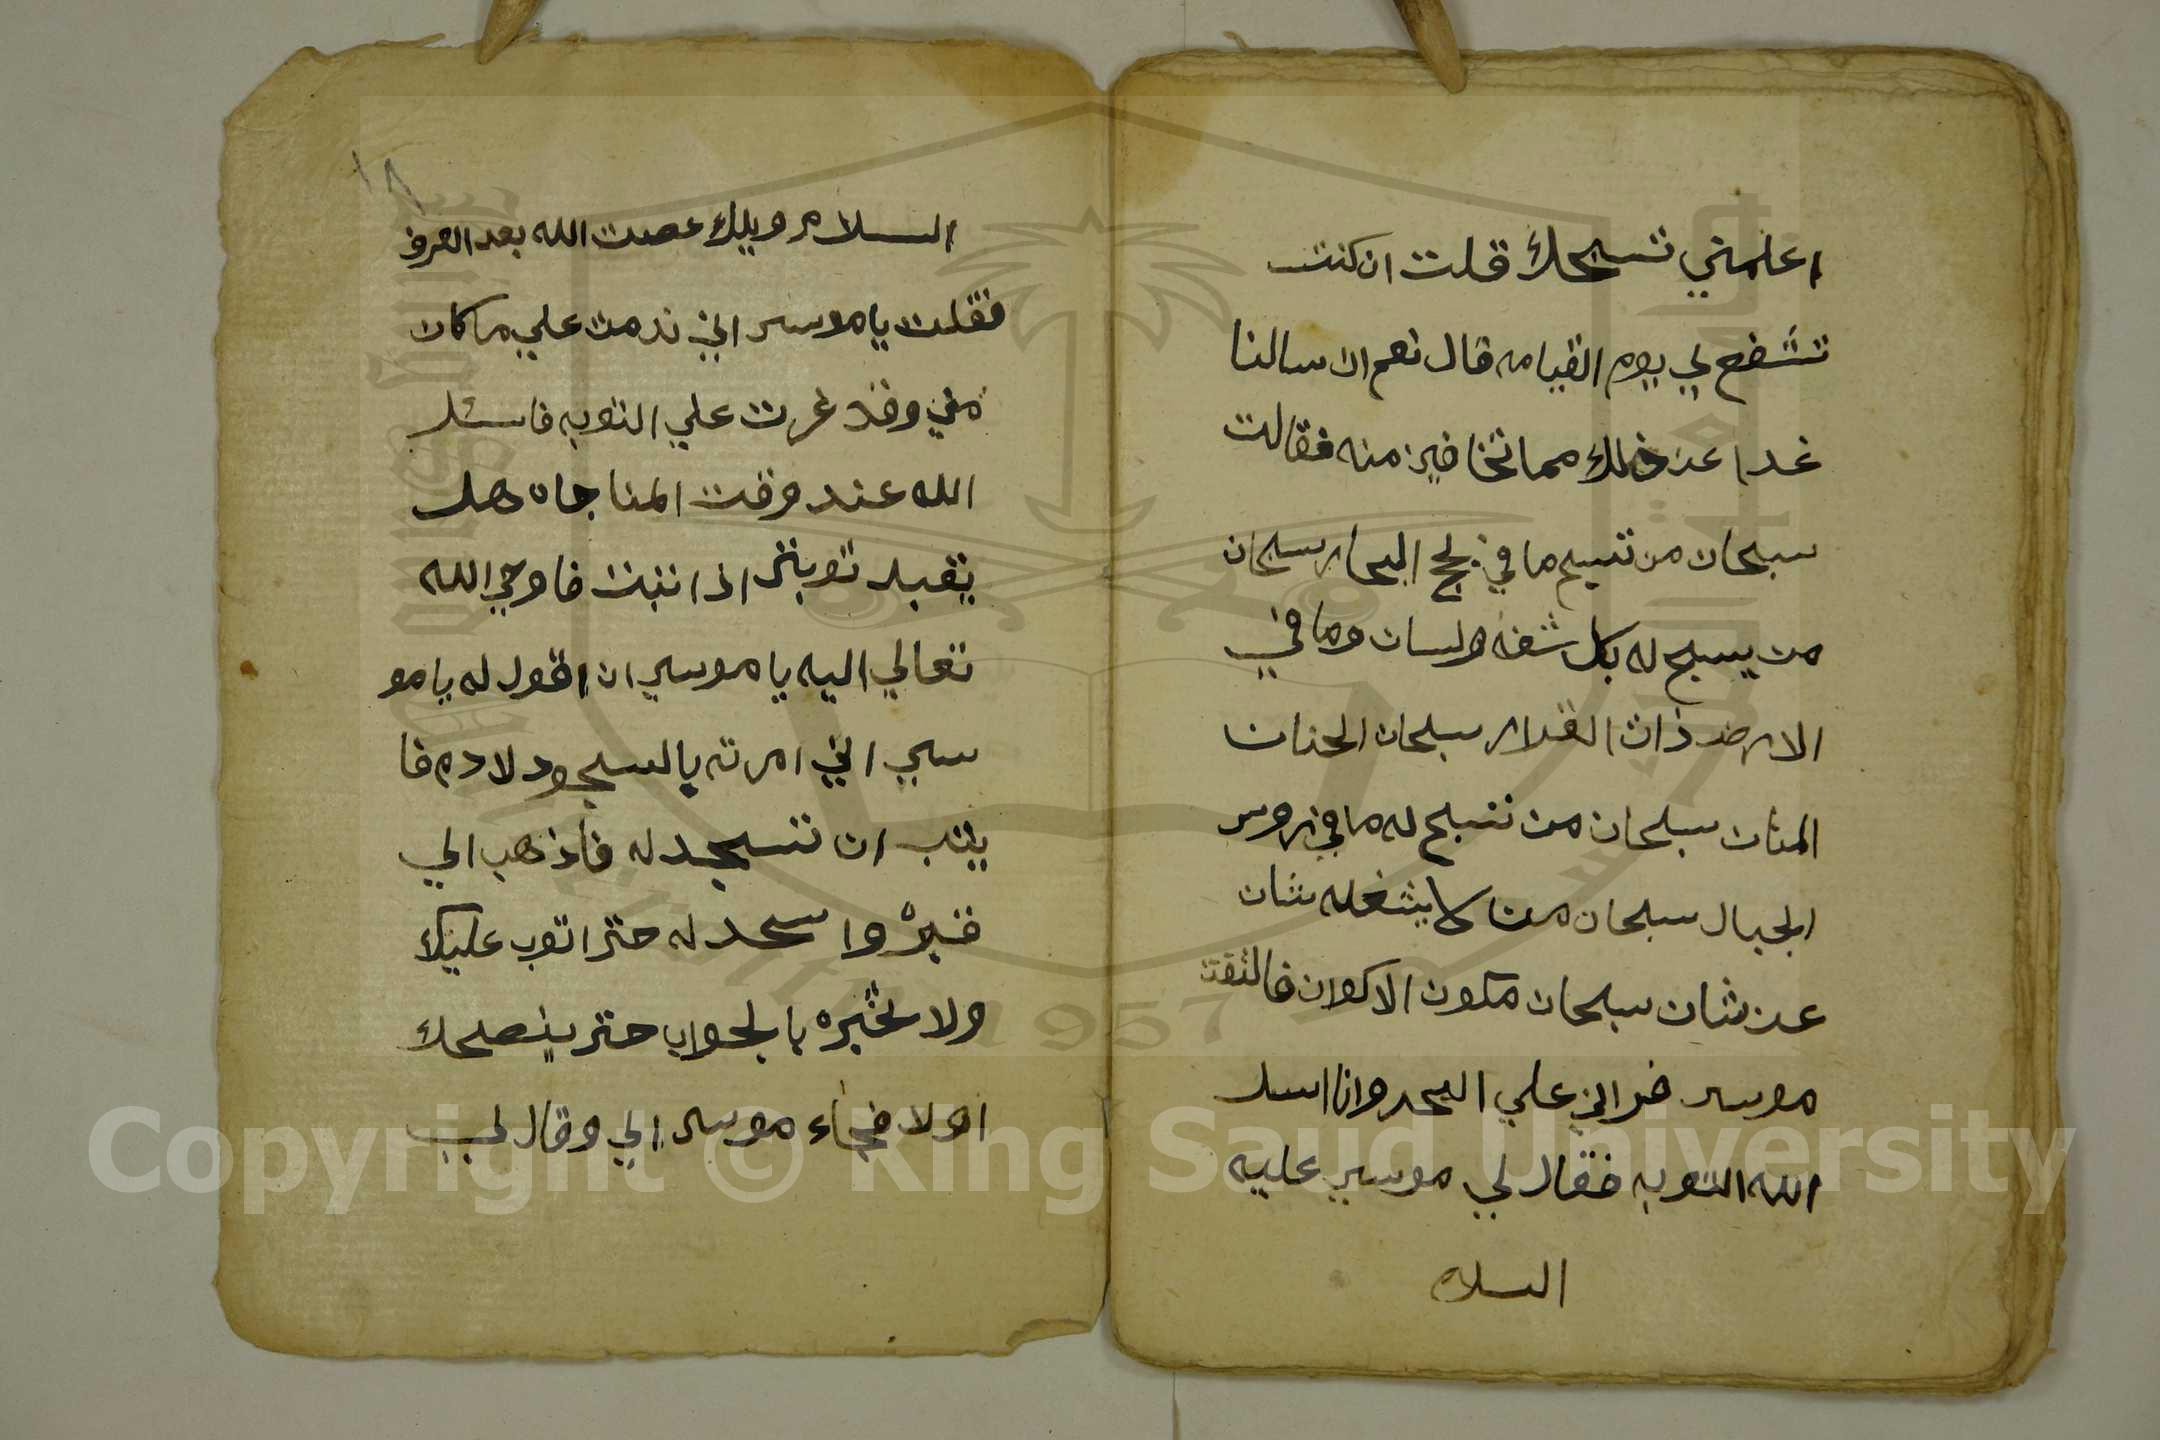 اعلمني تسبيحك قلت ان كنت
تشفع لي يوم القيامه قال نعم ان سالنا
غدا عن ذلك مما تخافين منه فقالت
سبحان من تسبح ما في لجج البحار سبحان
من يسبح له بكل شفه ولسان وما في
الارض ذات القدار سبحان الحنان
المنان سبحان من تسبح له ما في روس
الجبال سبحان من لا يشغله شان
عن شان سبحان مكون الاكوان فالتفت
موسي فراني علي البحر وانا اسل
الله التوبه فقال لي موسي عليه
السلام
١٨
السلام ويلك عصت الله بعد العرف
فقلت يا موسي اني ندمت علي ما كان
مني وقد عزت علي التوبه فاسئل
الله عند وقت المناجاه هل
يقبل توبتي اذا تبت فاوحي الله
تعالي اليه يا موسي ان اقول له يا مو
سي اني امرته بالسجود لادم فا
يتب ان تسجد له فاذهب الي
قبره واسجد له حتي اتوب عليك
ولا تخبره بالجواب حتي ينصحك
اولا فجاء موسي الي وقال لي
Copyright © King Saud University
1957